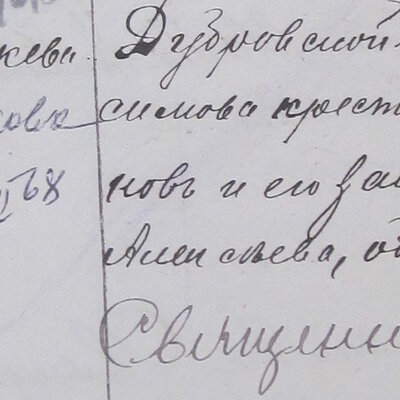 кева Дубровской
симова крест
новъ и его за
68
Алексѣева, об
Священн